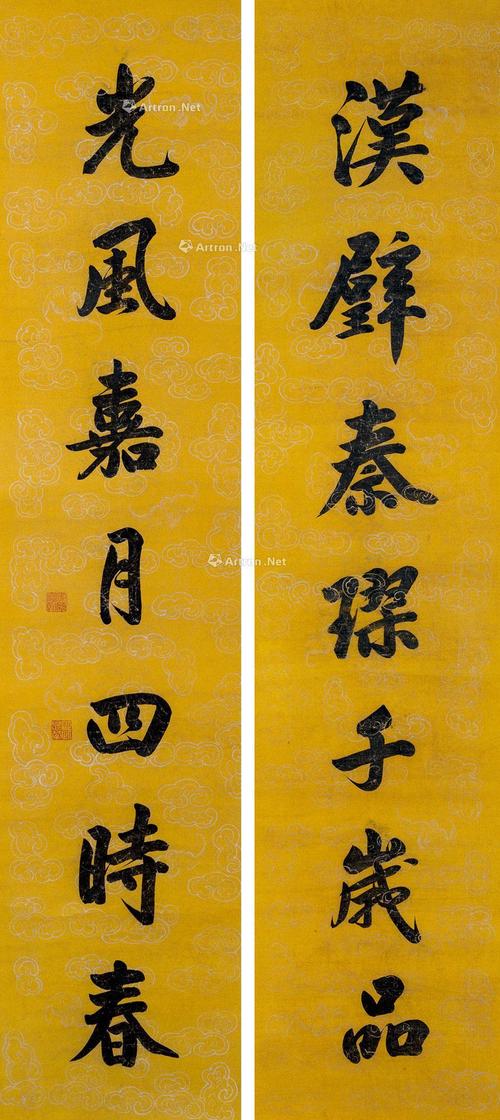 漢璧秦璆千歲品
光風嘉月四時春
Artron.Net
Artron.Net
Artron.Net